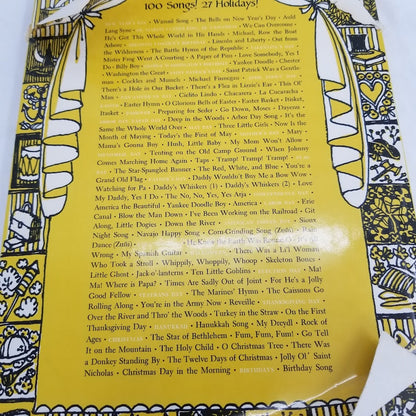 100 Songs! 27 Holidays!
NEW YEAR'S DAY • Wassail Song • The Bells on New Year's Day • Auld
Lang Syne • We Can Overcome •
He's Got This Whole World In His Hands • Michael, Row the Boat
Ashore • Lincoln and Liberty • Out from
the Wilderness • The Battle Hymn of the Republic •
Mister Frog Went A'Courting • A Paper of Pins • Love Somebody, Yes I
Do • Billy Boy • Yankee Doodle • Chester •
Washington the Great • Saint Patrick Was a Gentle-
man • Cockles and Mussels • Michael Finnegan •
There's a Hole in Our Bucket • There's a Flea in Lizzie's Ear • This Ol'
Man • Cielito Lindo • Chacarera • La Cucaracha •
Easter Hymn • O Glorious Bells of Easter • Easter Basket • Itisket,
Itasket • Preparing for Seder • Go Down, Moses • Dayenu •
Deep in the Woods • Arbor Day Song • It's the
Same the Whole World Over • MAY DAY • Three Little Girls • Now Is the
Month of Maying • Today's the First of May • Mary •
Mama's Goona Buy • Hush, Little Baby • My Mom Won't Allow •
Tenting on the Old Camp Ground • When Johnny
Comes Marching Home Again • Taps • Tramp! Tramp! Tramp! •
The Star-Spangled Banner • The Red, White, and Blue • You're a
Grand Old Flag • Daddy Wouldn't Buy Me a Bow Wow •
Watching for Pa • Daddy's Whiskers (1) • Daddy's Whiskers (2) • Love
My Daddy, Yes I Do • The No, No, Yes, Yes Arja •
America the Beautiful • Yankee Doodle Boy • America • LABOR DAY • Erie
Canal • Blow the Man Down • I've Been Working on the Railroad • Git
Along, Little Dogies • Down the River • Sioux
Night Song • Navajo Happy Song • Corn-Grinding Song (Zuñi) •
Dance (Zuñi) • He Knew the Earth Was Round-O
Wrong • My Spanish Guitar • There Was a Li'l Woman
Who Took a Stroll • Whippily, Whoppily, Whoop • Skeleton Bones •
Little Ghost • Jack-o'-lanterns • Ten Little Goblins • ELECTION DAY • Ma!
Ma! Where is Papa? • Times Are Sadly Out of Joint • For He's a Jolly
Good Fellow • VETERANS DAY • The Marines' Hymn • The Caissons Go
Rolling Along • You're in the Army Now • Reveille • THANKSGIVING DAY •
Over the River and Thro' the Woods • Turkey in the Straw • On the First
Thanksgiving Day • HANUKKAH • Hanukkah Song • My Dreydl • Rock of
Ages • CHRISTMAS • The Star of Bethlehem • Fum, Fum, Fum! • Go Tell
It on the Mountain • The Holy Child • O Christmas Tree • There Was
a Donkey Standing By • The Twelve Days of Christmas • Jolly Ol' Saint
Nicholas • Christmas Day in the Morning • BIRTHDAYS • Birthday Song